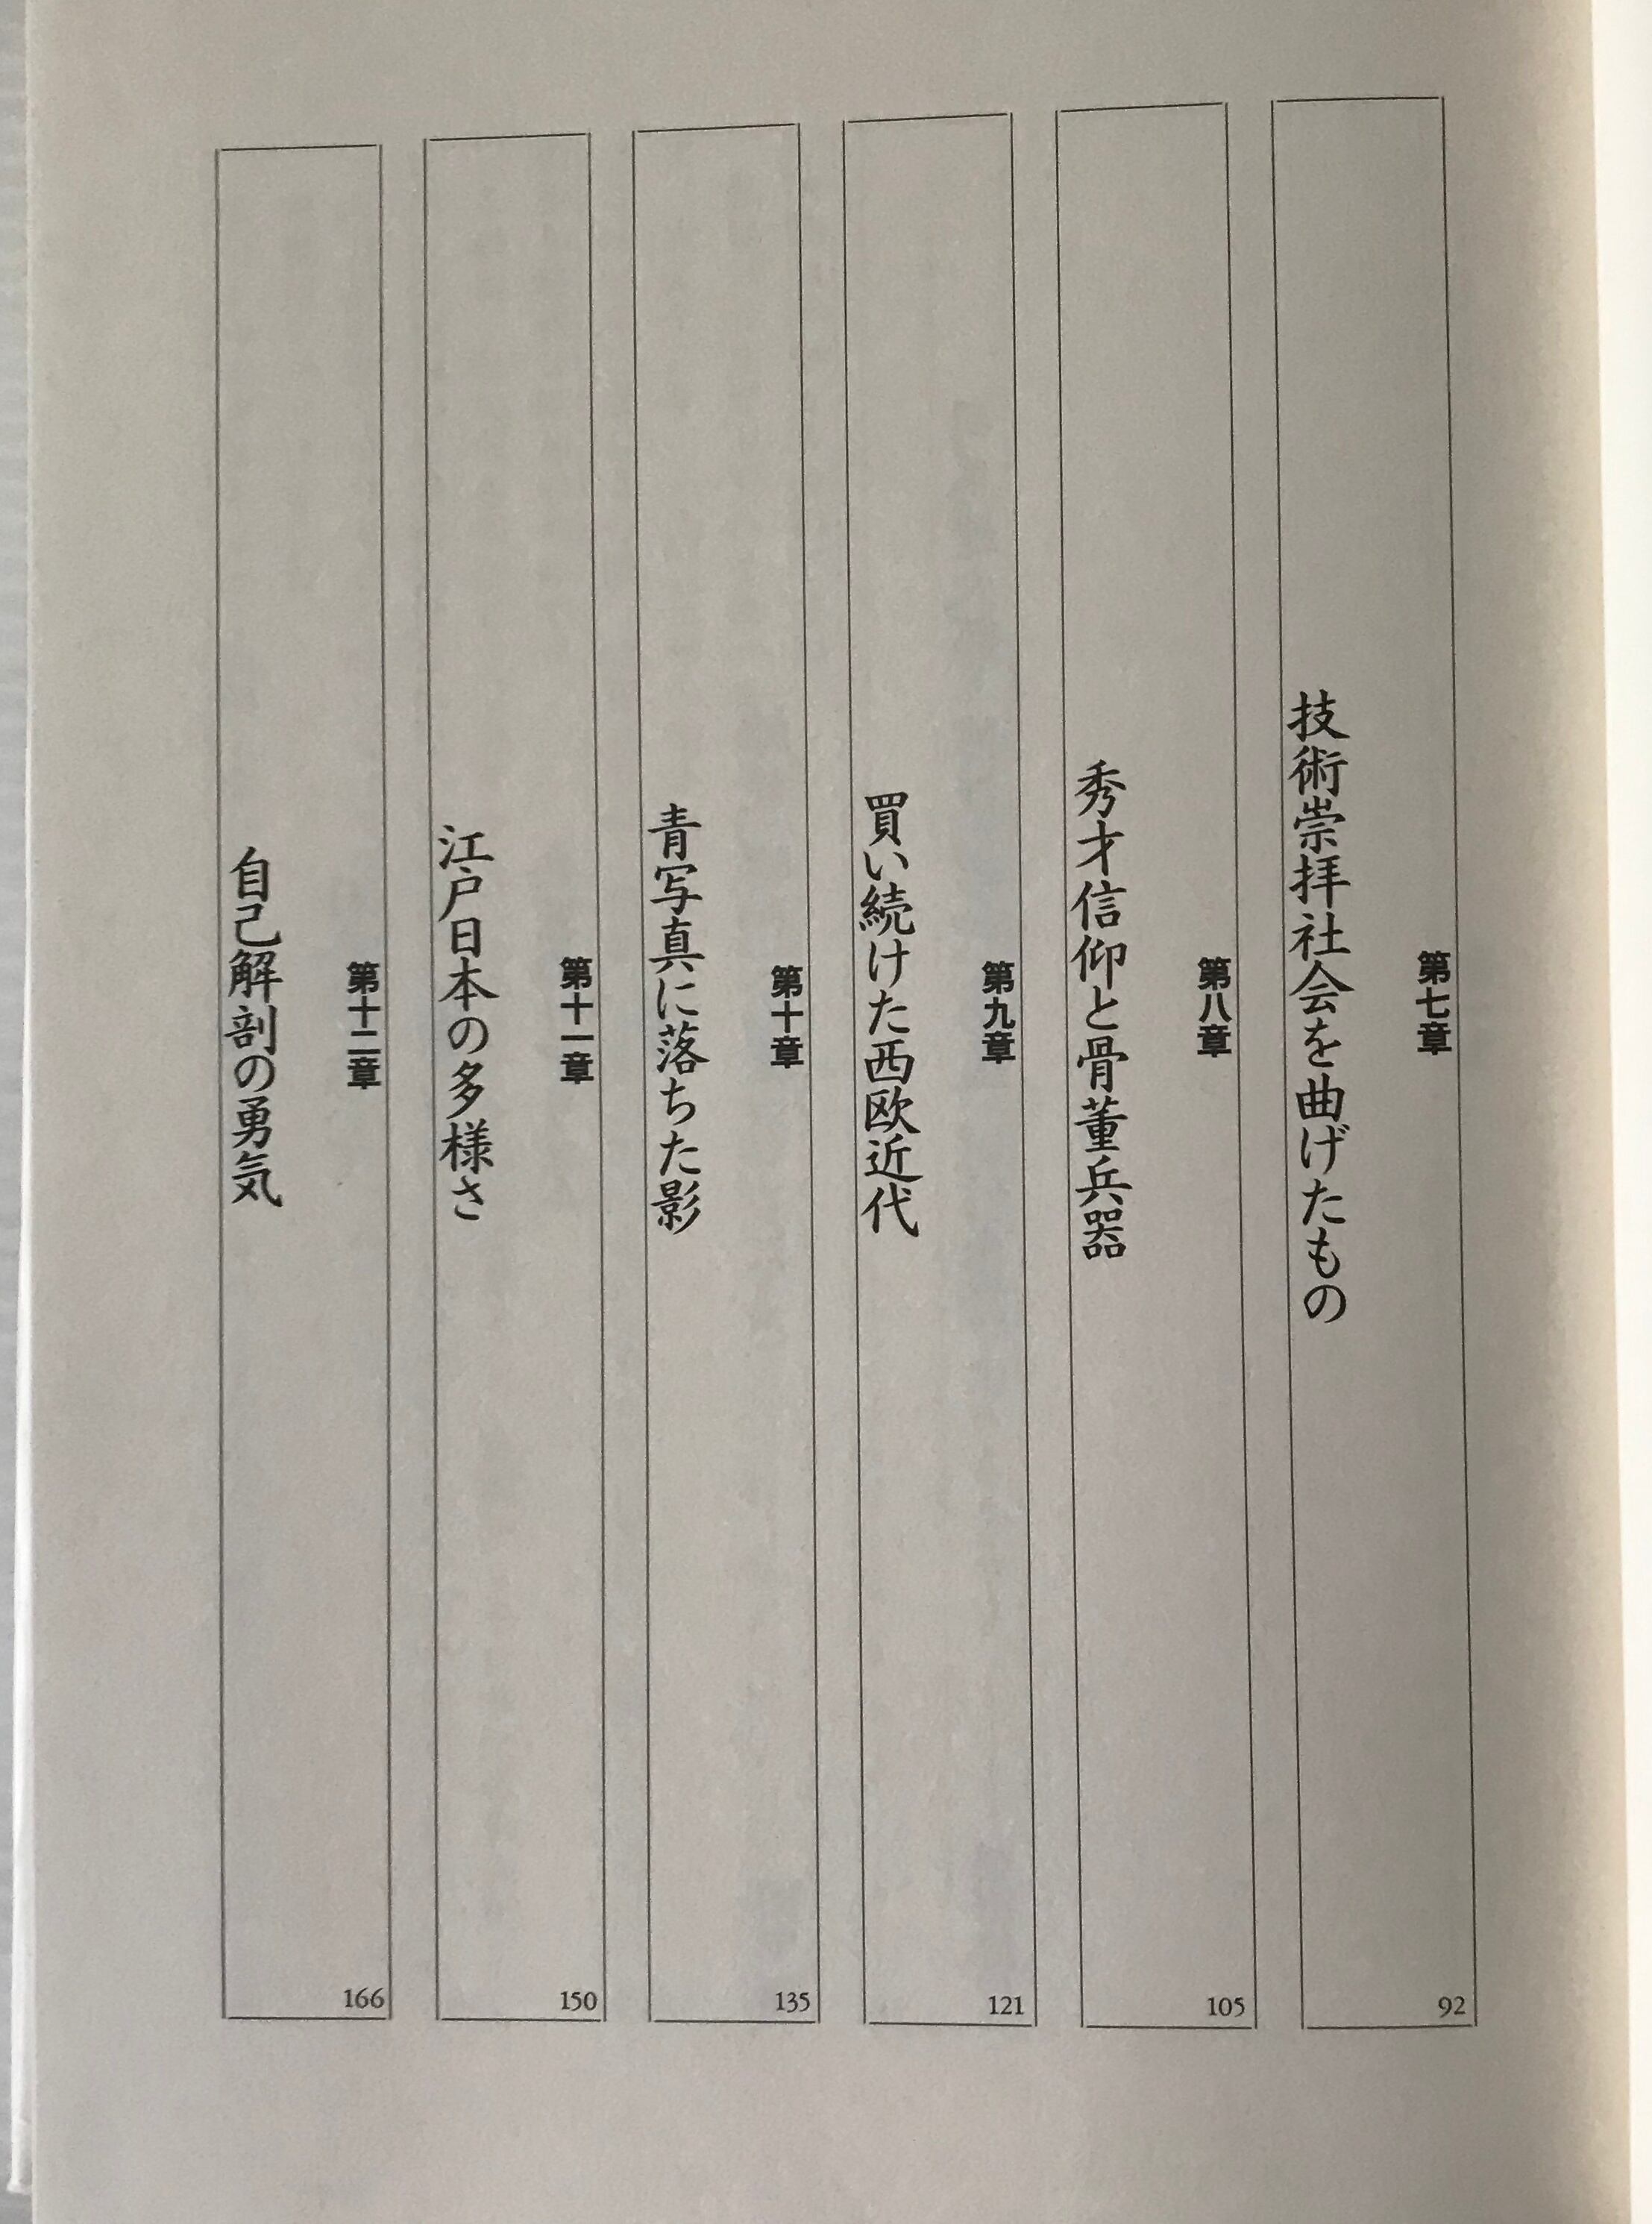 第七章
技術崇拝社会を曲げたもの
92
第八章
秀才信仰と骨董兵器
105
第九章
買い続けた西欧近代
121
第十章
青写真に落ちた影
135
第十一章
江戸日本の多様さ
150
第十二章
自己解剖の勇気
166